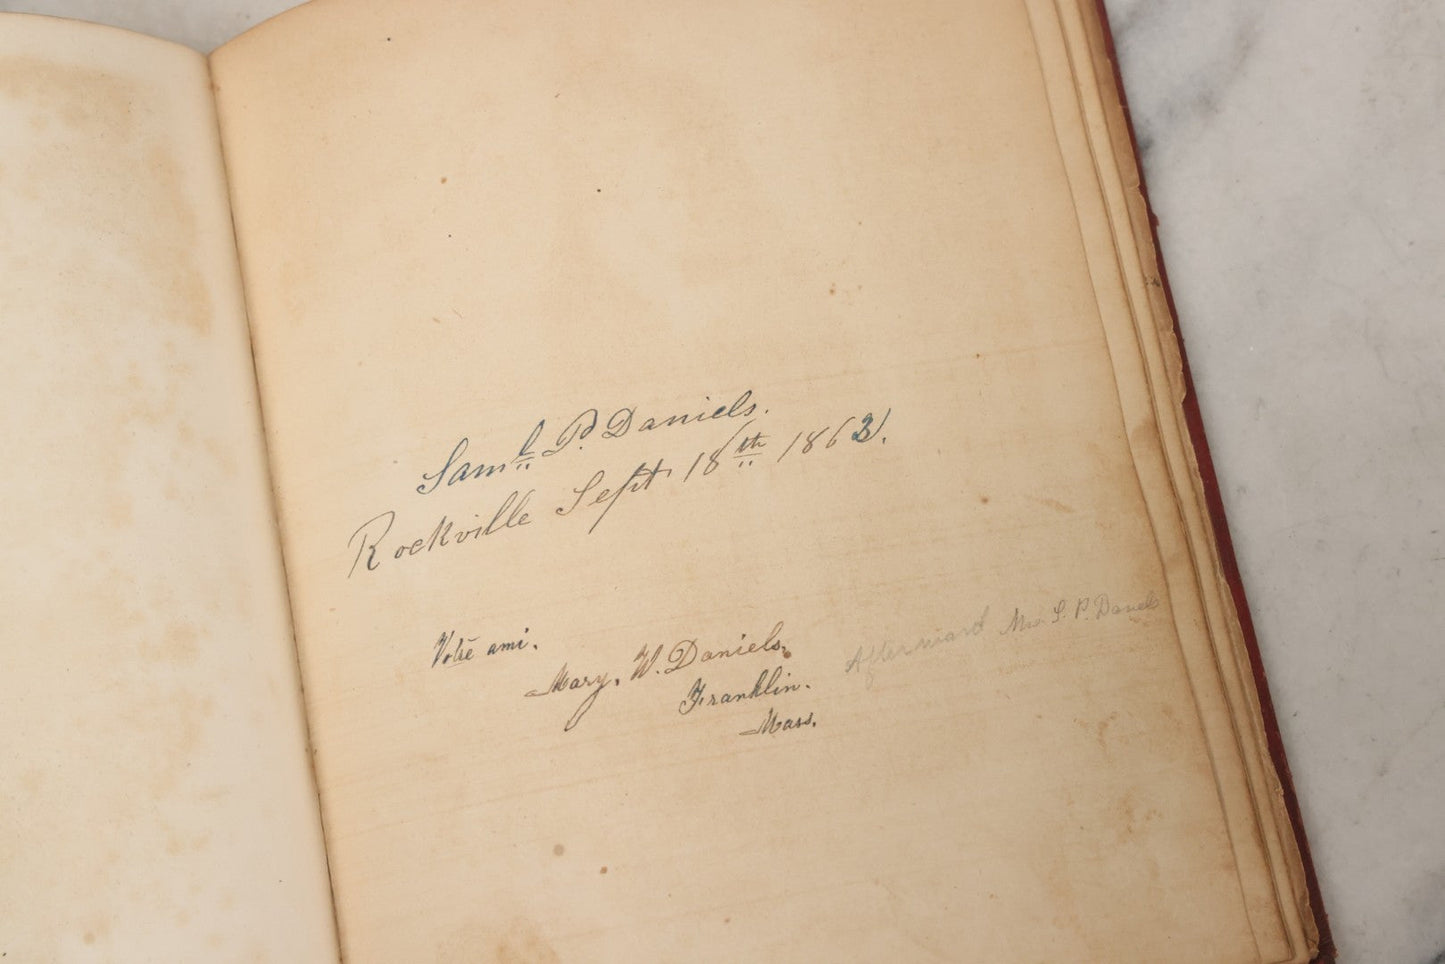 Saml. P. Daniels.
Rockville Sept 18th 1863.
Votre ami.
Mary. W. Daniels. Afterward Mrs. S. P. Daniels
Franklin.
Mass.